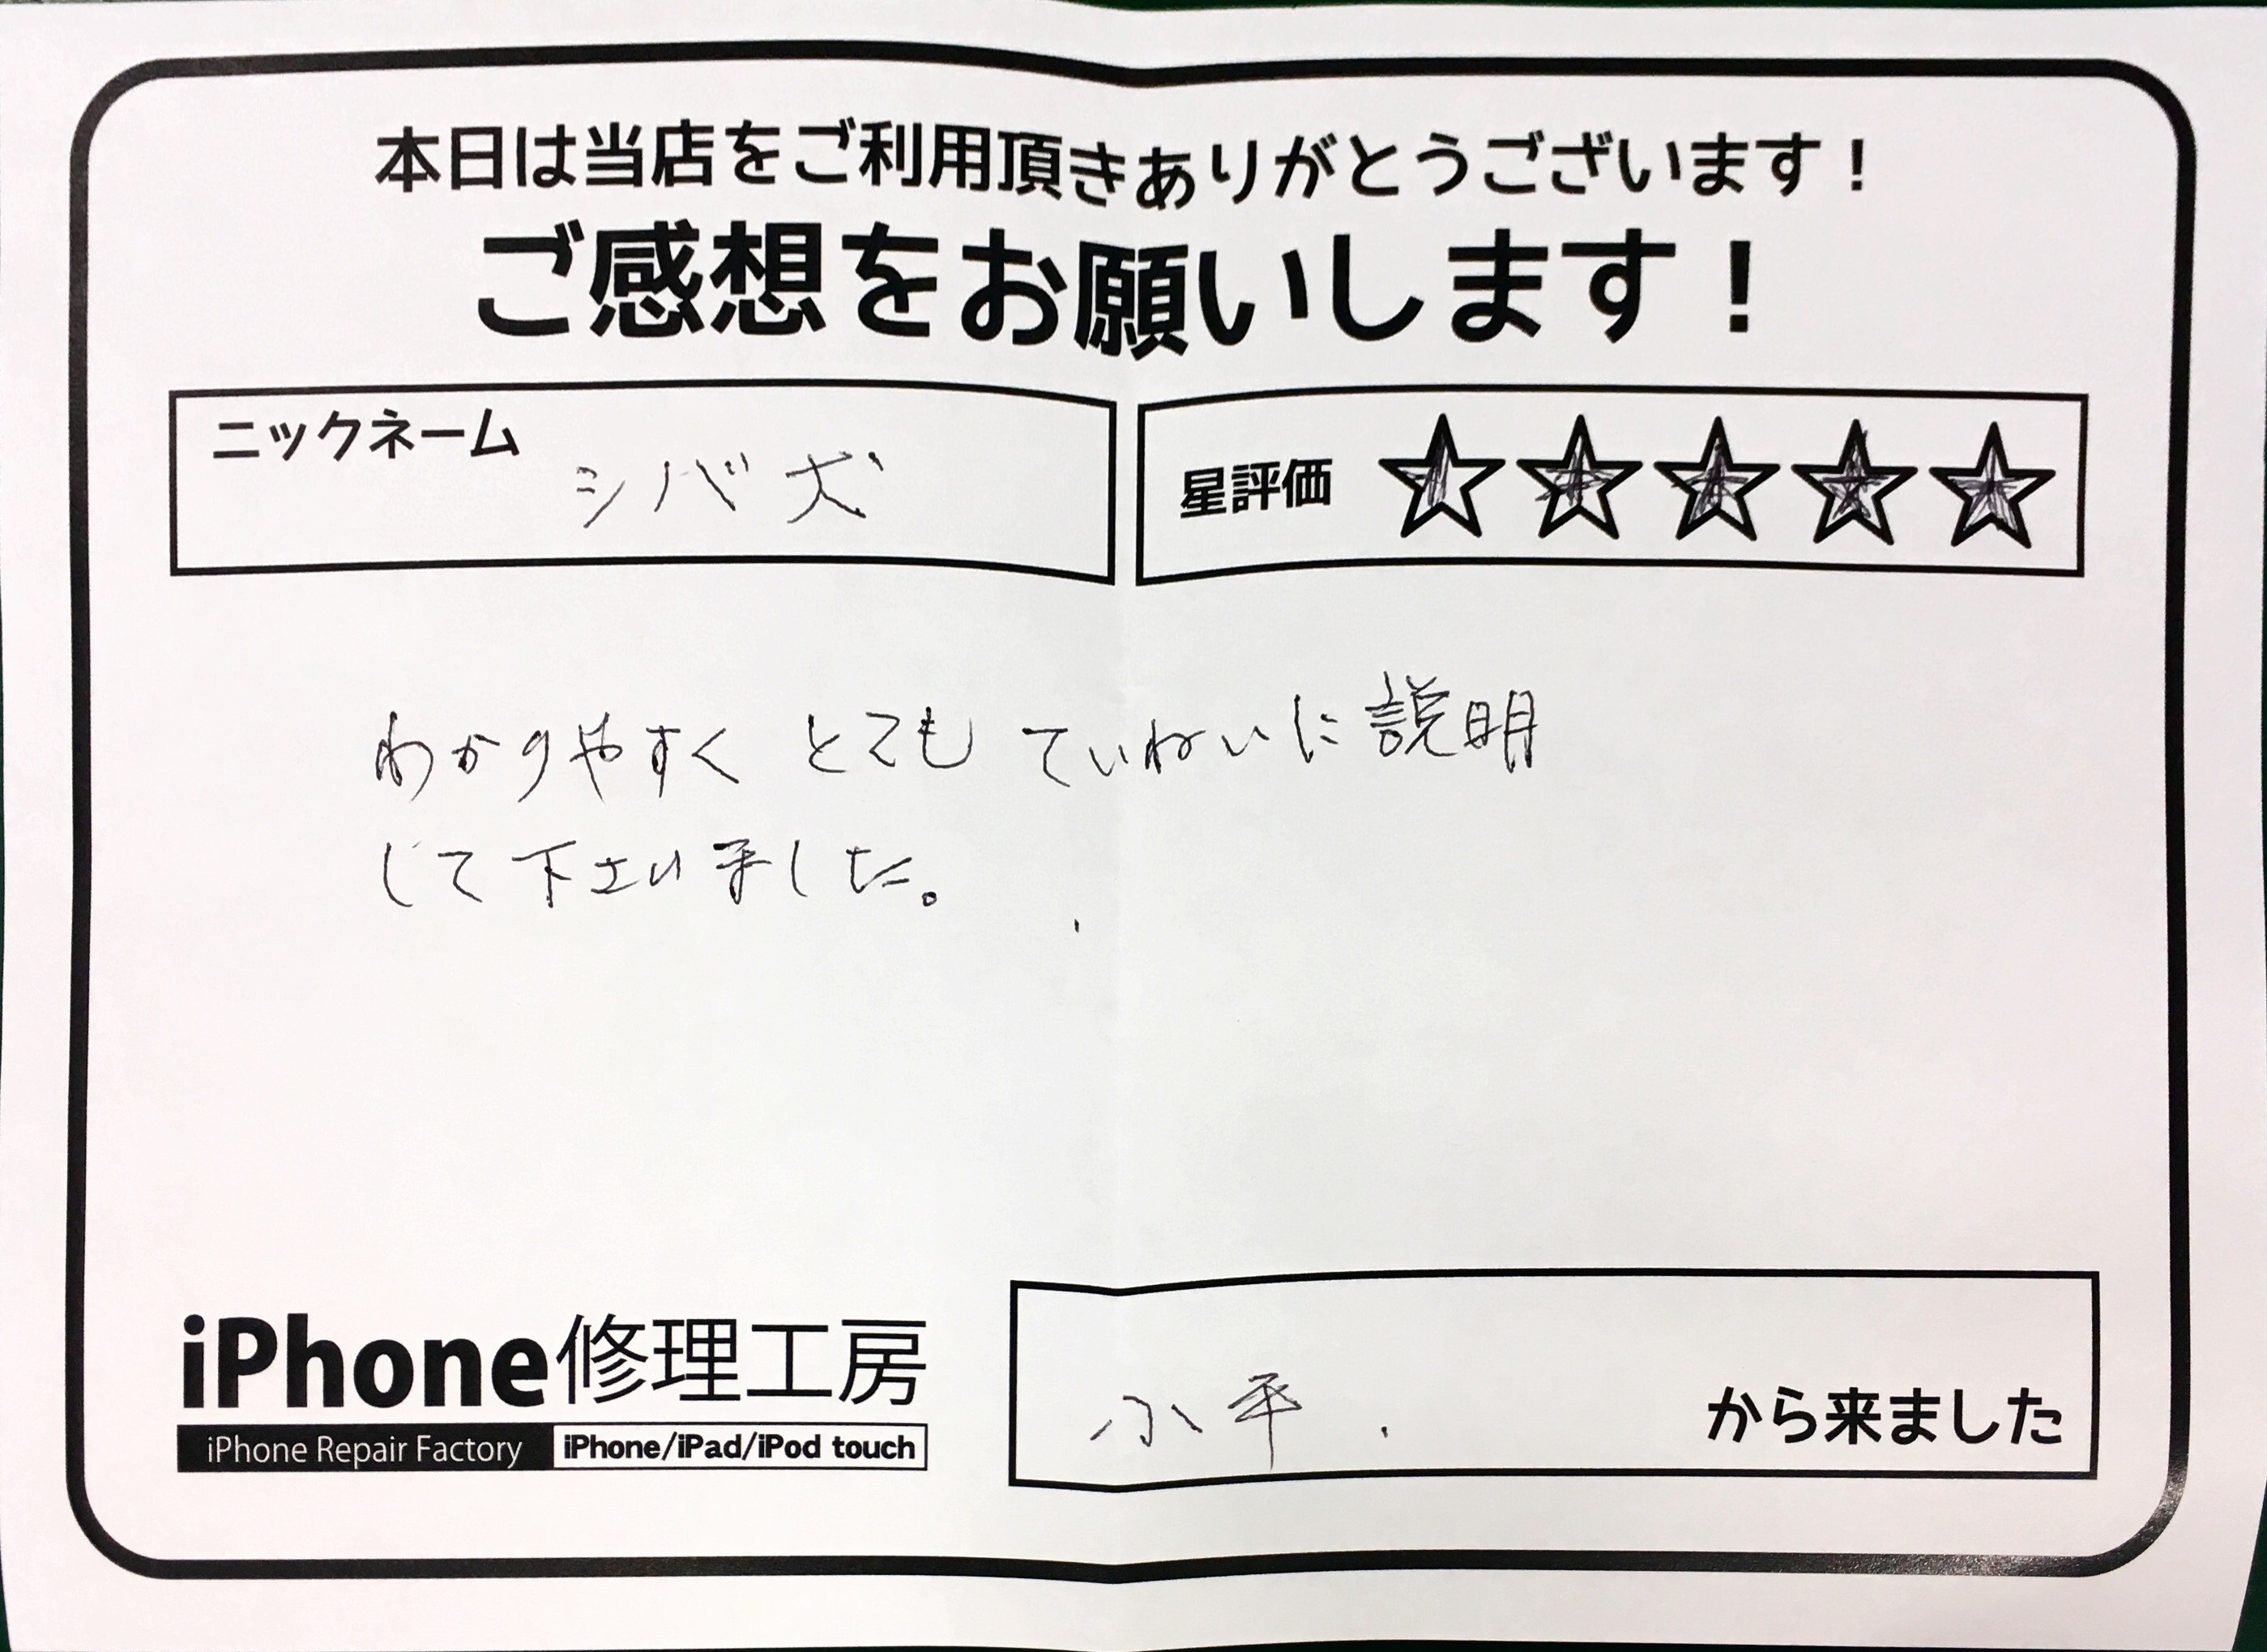 本日は当店をご利用頂きありがとうございます！
ご感想をお願いします！
ニックネーム シバ犬
星評価 ☆☆☆☆☆
わかりやすく とても ていねいに説明
して下さいました。
iPhone修理工房
iPhone Repair Factory iPhone/iPad/iPod touch
小平. から来ました